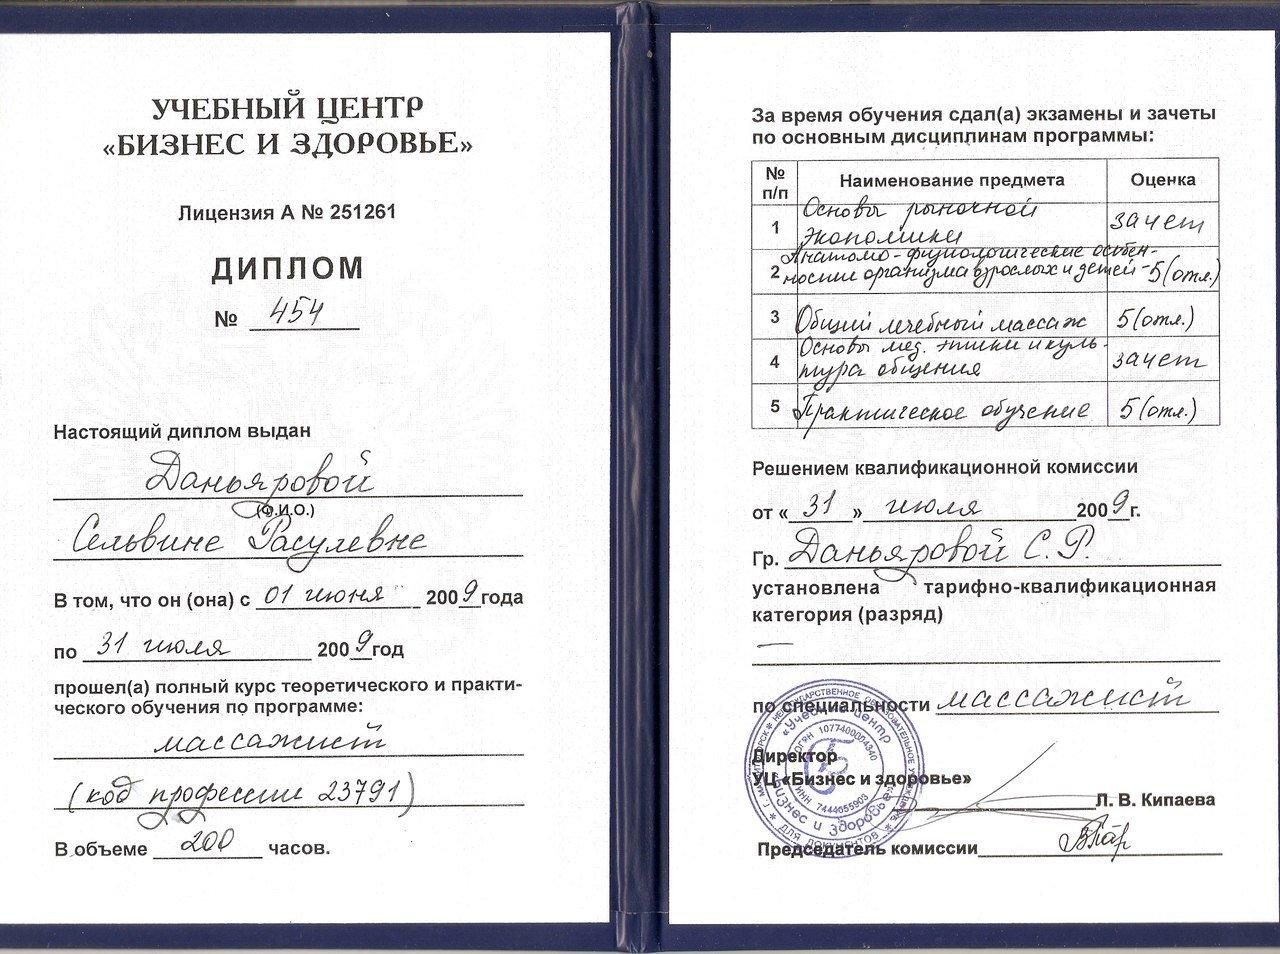 УЧЕБНЫЙ ЦЕНТР
«БИЗНЕС И ЗДОРОВЬЕ»
Лицензия А № 251261
ДИПЛОМ
№ 454
Настоящий диплом выдан
Даньяровой
(Ф.И.О.)
Сельвине Расулевне
В том, что он (она) с 01 июня 2009 года
по 31 июля 2009 год
прошел(а) полный курс теоретического и практи-
ческого обучения по программе:
массажист
(код профессии 23791)
В объеме 200 часов.
За время обучения сдал(а) экзамены и зачеты
по основным дисциплинам программы:
№ п/п Наименование предмета Оценка
1 Основы рыночной
экономики зачет
Анатомо-физиологические особен-
2 ности организма взрослых и детей - 5(отл.)
3 Общий лечебный массаж 5(отл.)
Основы мед. этики и куль-
4 тура общения зачет
5 Практическое обучение 5(отл.)
Решением квалификационной комиссии
от «31» июля 2009 г.
Гр. Даньяровой С.Р.
установлена тарифно-квалификационная
категория (разряд)
—
по специальности массажист
Директор
УЦ «Бизнес и здоровье»
Л. В. Кипаева
Председатель комиссии
«Учебный центр
«Бизнес и здоровье»
ОГРН 1077400004340
ИНН 7444055903
ДЛЯ ДОКУМЕНТОВ